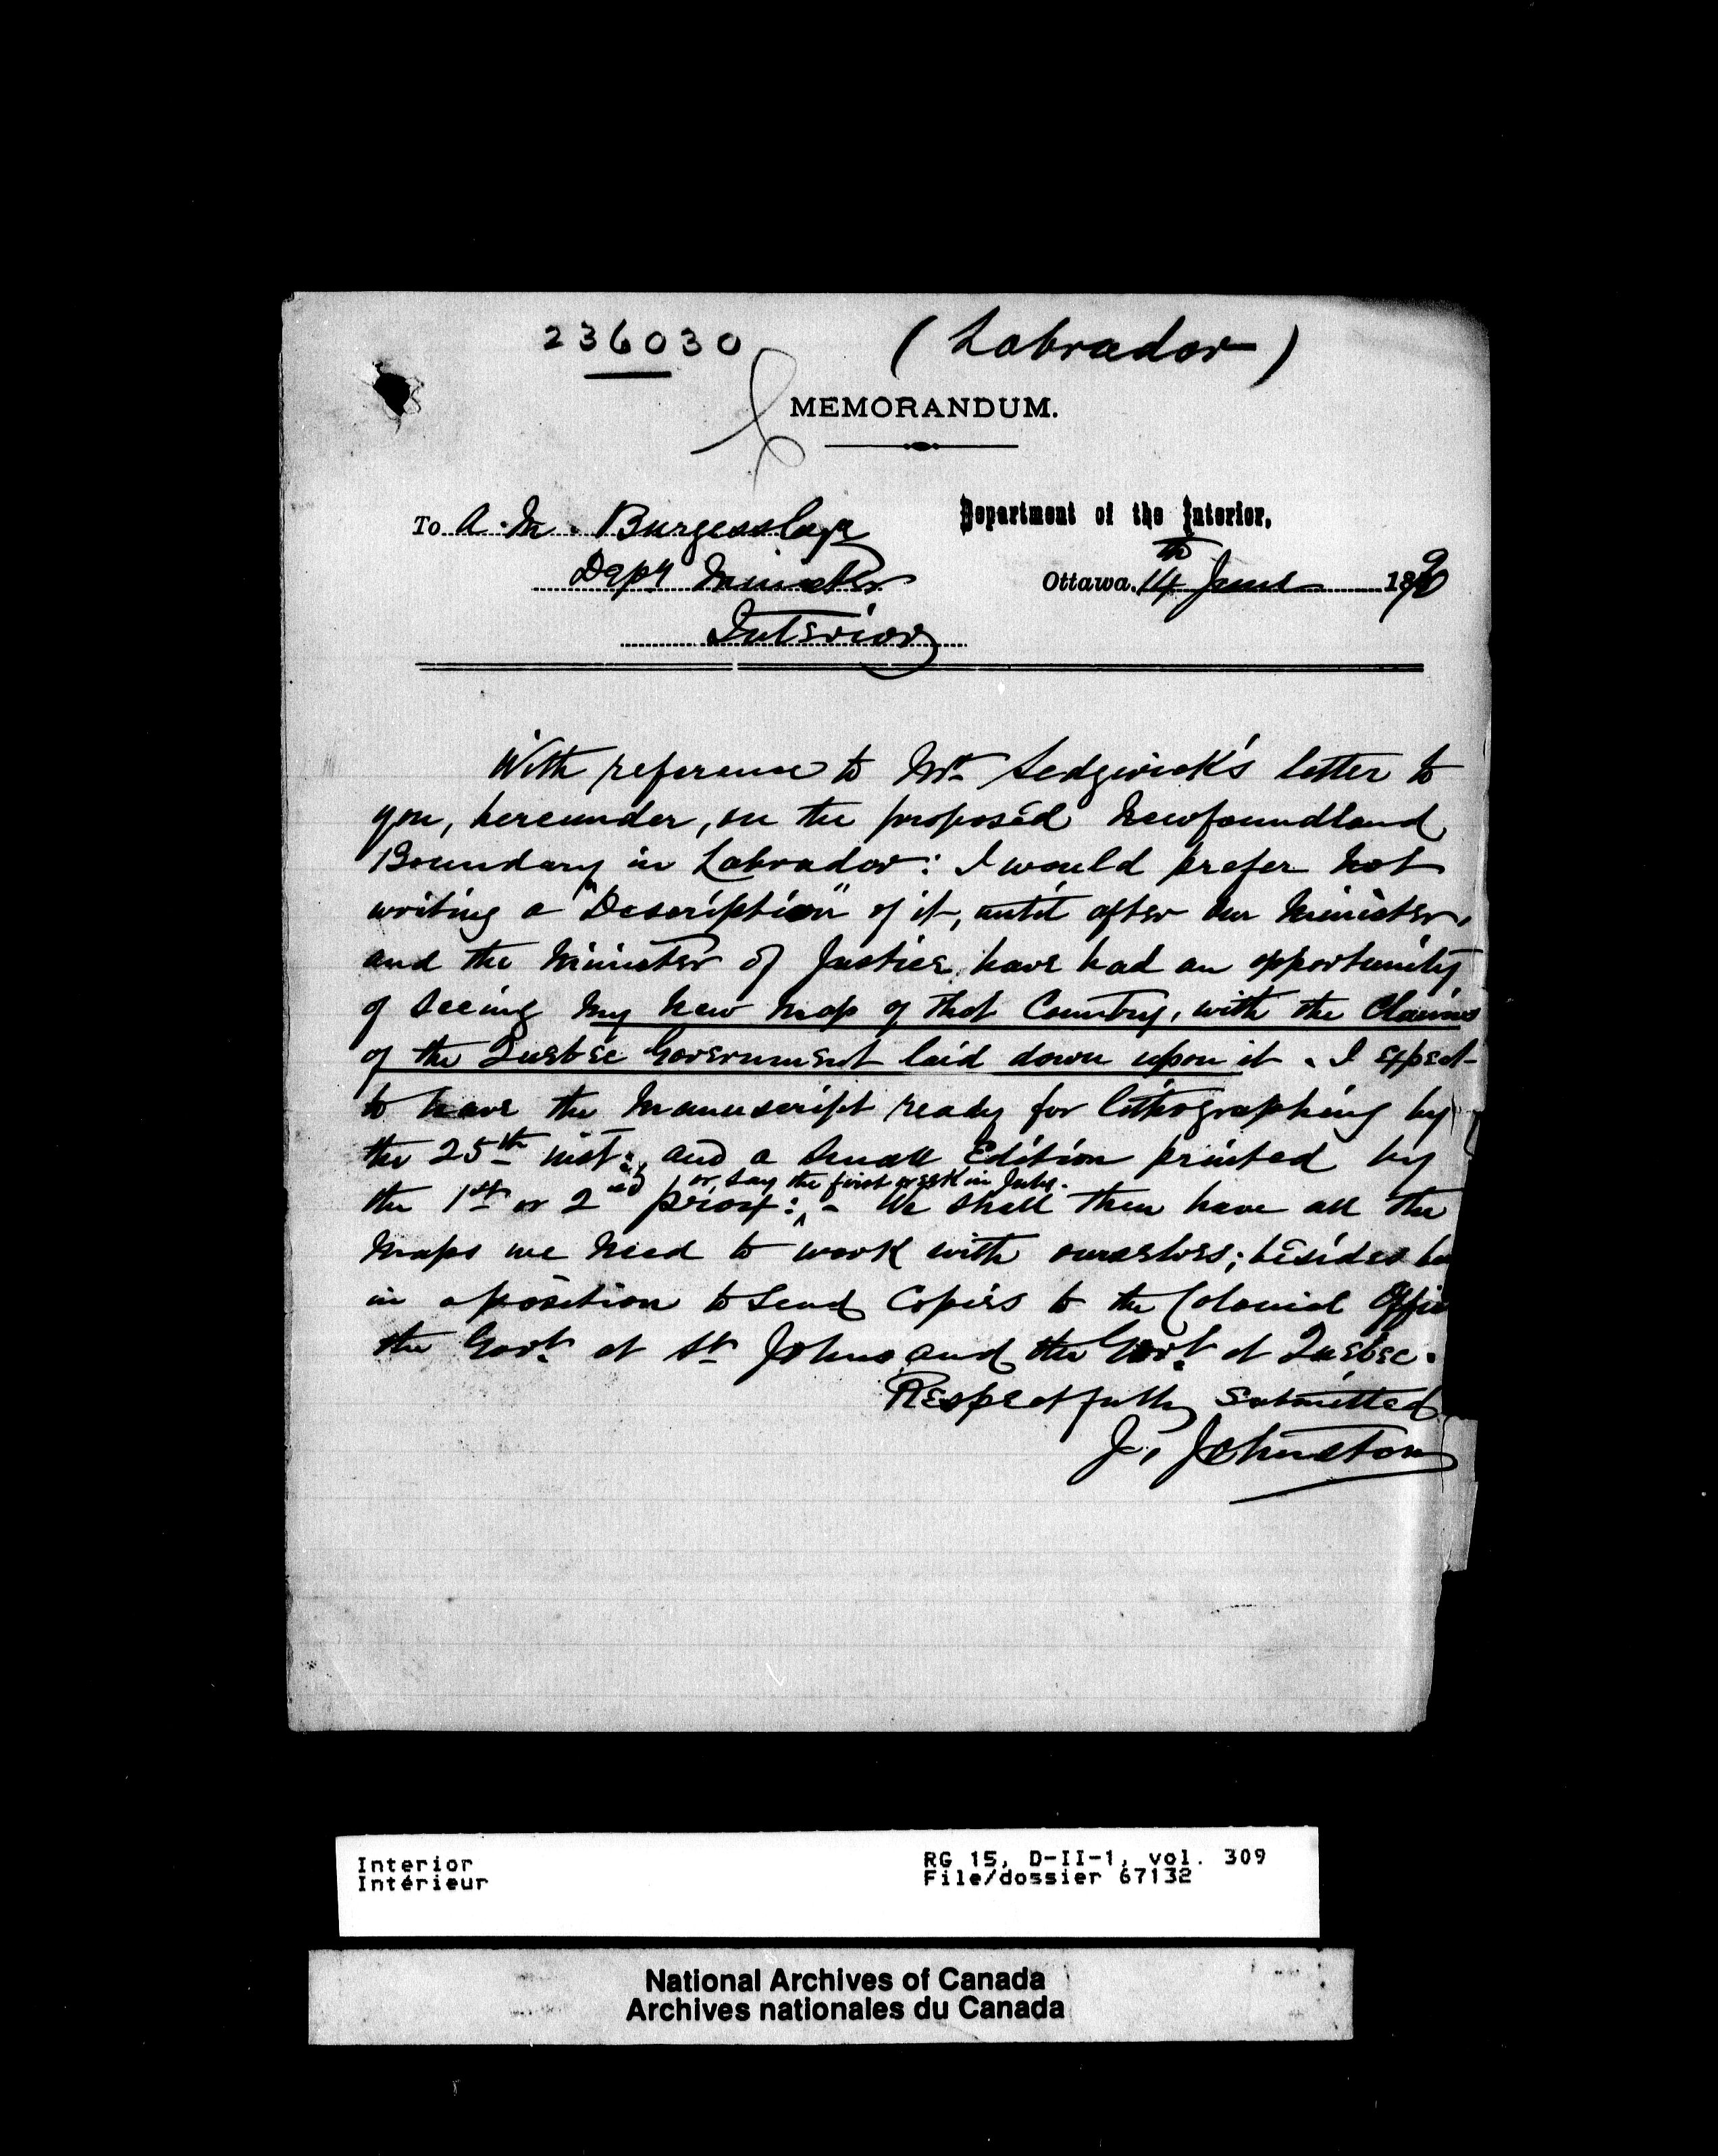 236030 (Labrador)
MEMORANDUM.
To A. M. Burgess Esqr
Department of the Interior,
Depy Minister
Ottawa. 14th June 1890
Interior
With reference to Mr. Sedgwick's letter to
you, hereunder, on the proposed Newfoundland
Boundary in Labrador: I would prefer not
writing a "Description" of it, until after our Minister,
and the Minister of Justice, have had an opportunity
of seeing my new map of that Country, with the Claims
of the Quebec Government laid down upon it. I expect
to have the manuscript ready for lithographing by
the 25th inst:, and a small Edition printed by
or, say the first week in July.
the 1st or 2nd prox: - We shall then have all the
maps we need to work with ourselves; besides be
in a position to send Copies to the Colonial Offic
the Govt. at St Johns and the Govt. at Quebec.
Respectfully submitted
J. Johnston
Interior
Intérieur
RG 15, D-II-1, vol. 309
File/dossier 67132
National Archives of Canada
Archives nationales du Canada